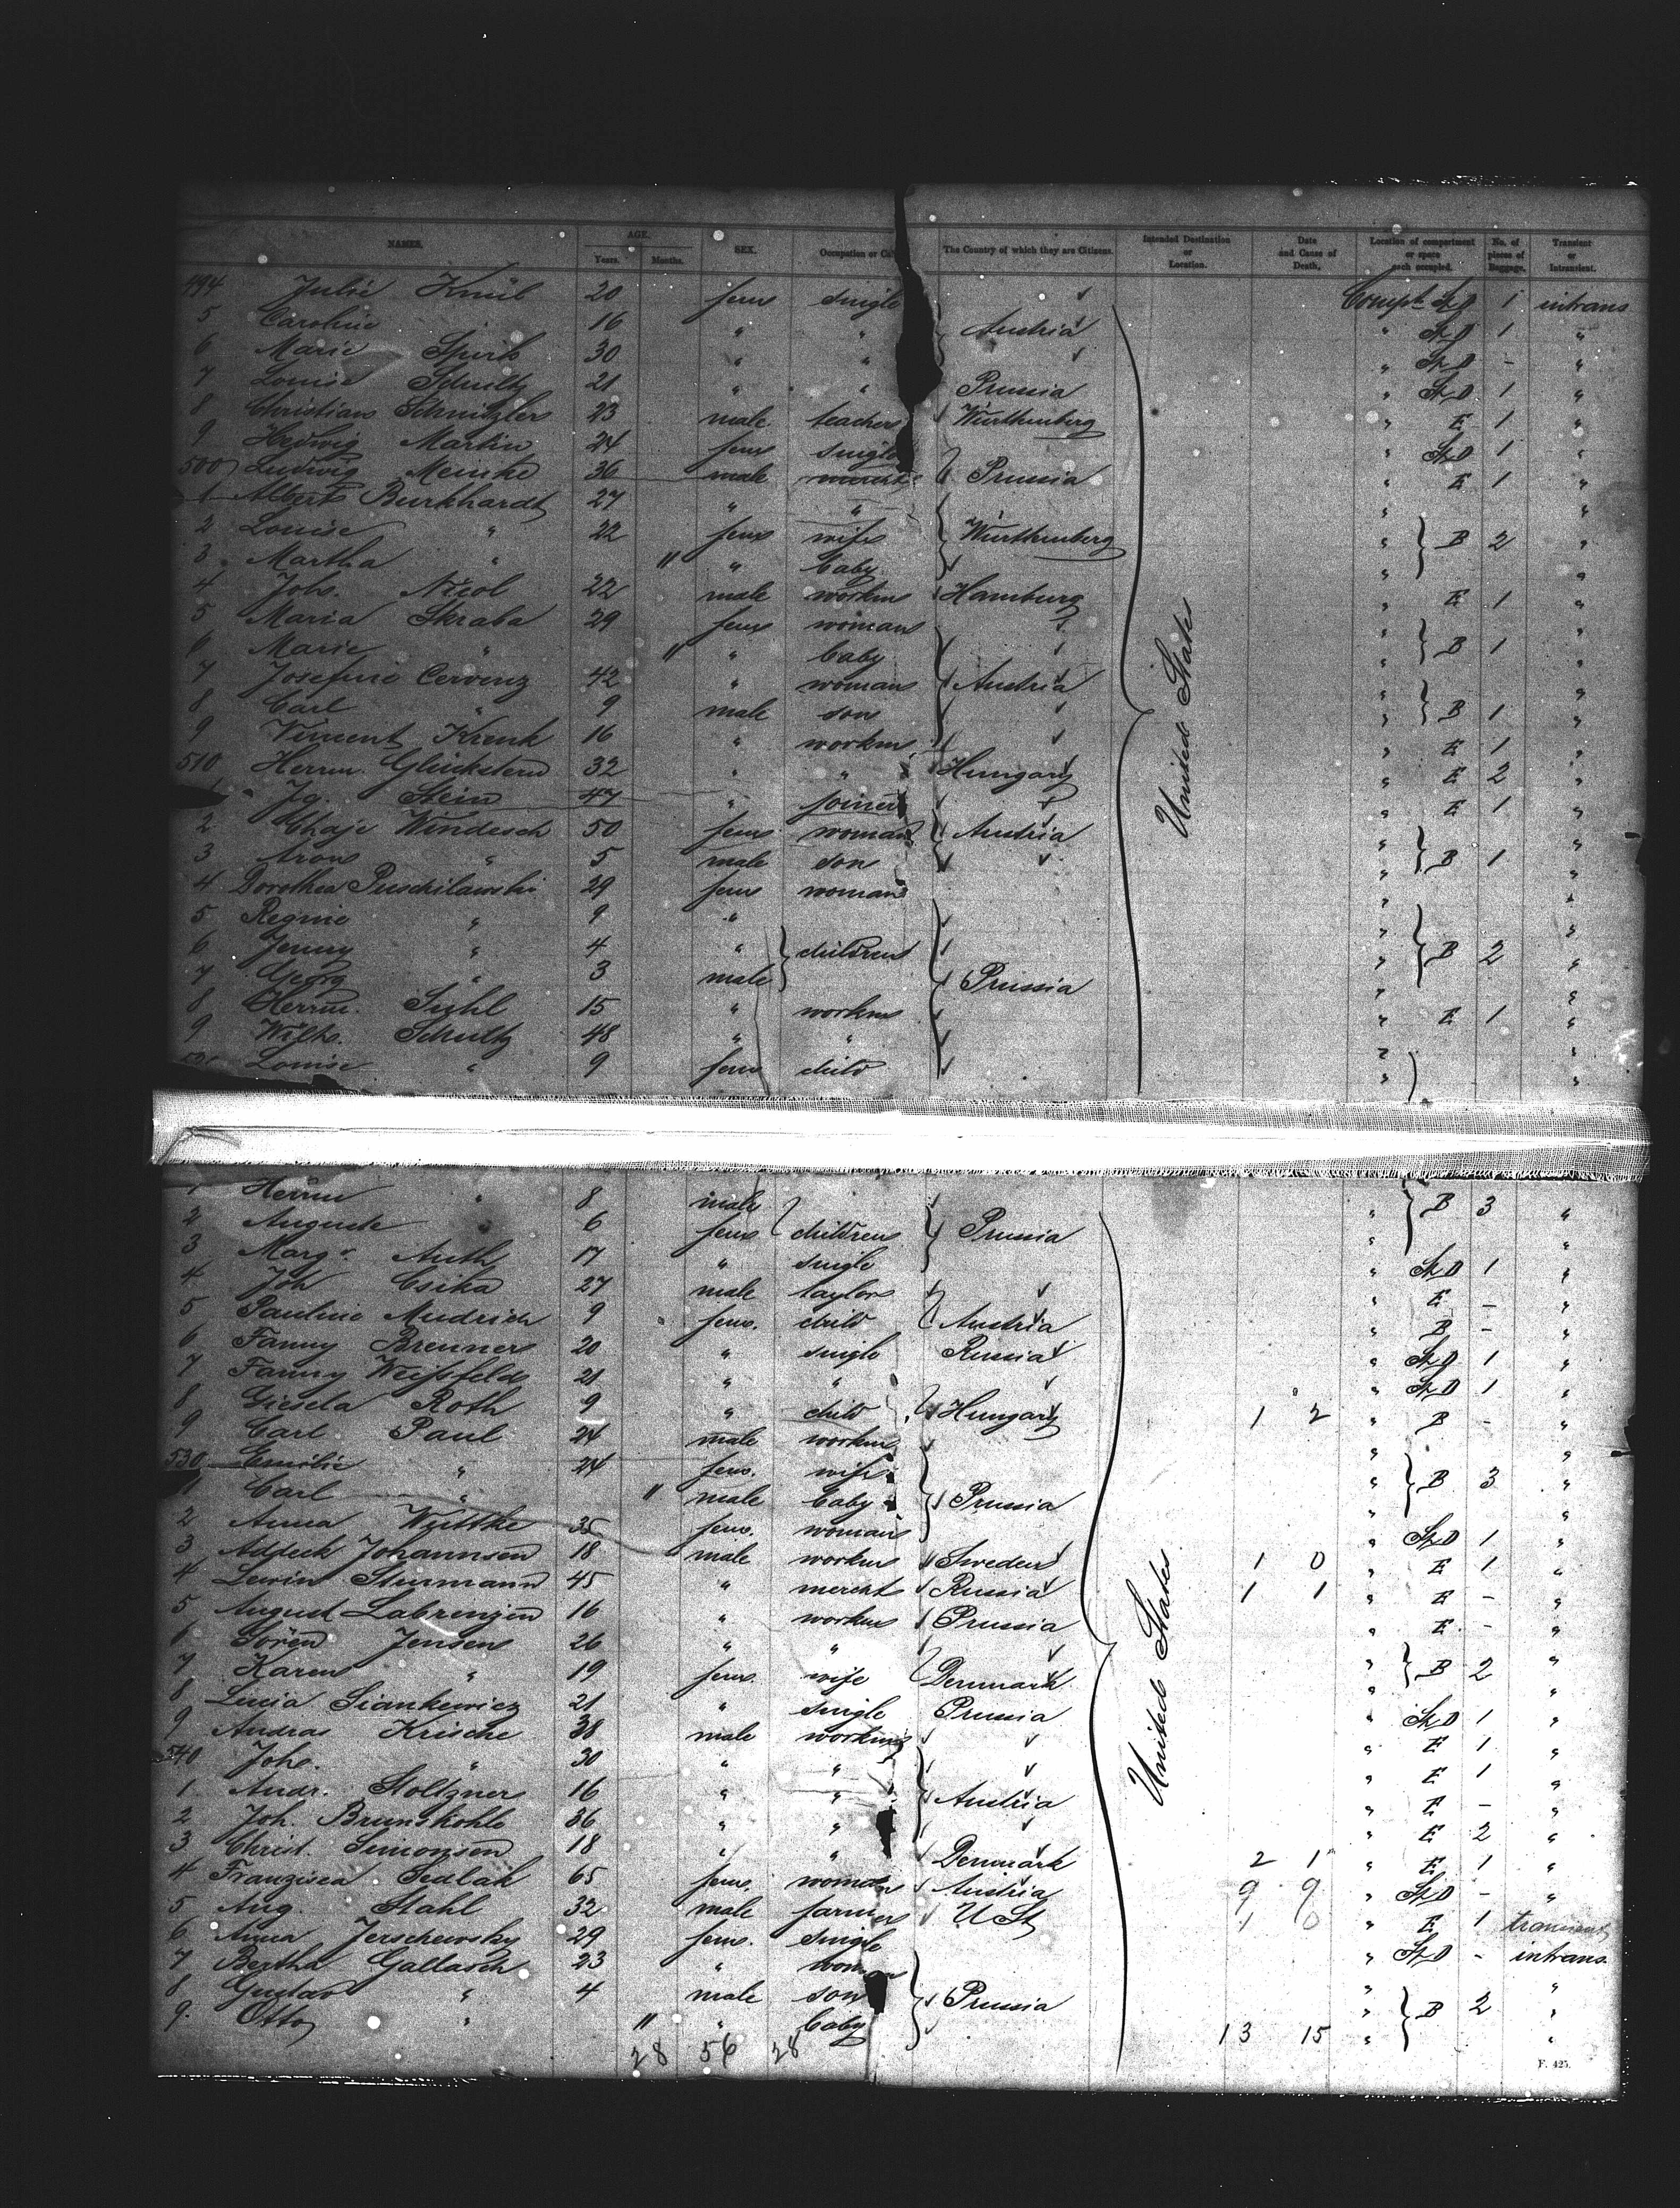 NAMES. AGE. SEX. Occupation or Ca The Country of which they are Citizens. Intended Destination or Location. Date and Cause of Death. Location of compartment or space each occupied. No. of pieces of Baggage. Transient or Intransient.
Years. Months.
494 Julie 20 fem single Compt. 1 intrans
5 Caroline 16 " " Austria " 1 "
6 Marie 30 " " " - "
7 Louise Schultz 21 " " Prussia " 1 "
8 Christian Schnitzler 23 male teacher Würthenberg " E 1 "
9 Hedwig Martin 24 fem single " 1 "
500 Ludwig Menike 36 male Prussia " E 1 "
1 Albert Burkhardt 27 " " " "
2 Louise " 22 fem wife Würthenberg " B 2 "
3 Martha " " " baby " "
4 Joh. Nicol 22 male workm Hamburg " E 1 "
5 Maria Skraba 29 fem woman " "
6 Marie " " " baby " B 1 "
7 Josefine Cervenz 42 " woman Austria " "
8 Carl " 9 male son " B 1 "
9 Vincent Krenk 16 " workm " E 1 "
510 Herrm. Glückstern 32 " " Hungary " E 2 "
Jg. Stein 47 " joiner " E 1 "
2 Chaje Windesch 50 fem woman Austria " "
3 Aron " 5 male son " B 1 "
4 Dorothea Puschilawski 29 fem woman " "
5 Regine " 9 " " "
6 Jenny " 4 " children " B 2 "
7 Georg " 3 male Prussia " "
8 Herrm. 15 " workm " E 1 "
9 Wilh. Schultz 48 " " " "
Louise " 9 fem child " "
1 Herrm " 8 male " B 3 "
2 Auguste " 6 fem children Prussia " "
3 Marg. Auth 17 " single " 1 "
4 Joh Csika 27 male taylor " E - "
5 Pauline Mudrich 9 fem. child Austria " B - "
6 Fanny Brenner 20 " single Russia " 1 "
7 Fanny Weissfeld 21 " " " 1 "
8 Giesela Roth 9 " child Hungary 1 2 " B - "
9 Carl Paul 24 male workm " "
530 Emilie " 24 fem. wife " B 3 "
1 Carl " " male baby Prussia " "
2 Anna Wuttke 35 fem. woman " 1 "
3 Addeck Johannsen 18 male workm Sweden 1 0 " E 1 "
4 Lewin Sturmann 45 " mercht Russia 1 1 " E - "
5 August Labrenzen 16 " workm Prussia " E - "
6 Sören Jensen 26 " " " "
7 Karen " 19 fem. wife Denmark " B 2 "
8 Lucia Siankewicz 21 " single Prussia " 1 "
9 Andras Krische 38 male workm " E 1 "
540 Joh. " 30 " " " E 1 "
1 Andr. Holtzner 16 " " Austria " E - "
2 Joh. Brunskohle 36 " " " E 2 "
3 Christ. Simonsen 18 " " Denmark 2 1 " E 1 "
4 Franzisca Sedlak 65 fem. woman Austria 9 9 " - "
5 Aug. Stahl 32 male farmer U St 1 0 " E 1 transient
6 Anna Jerschewsky 29 fem. single " - intrans
7 Bertha Gallasch 23 " woman " "
8 Gustav " 4 male son Prussia " B 2 "
9. Otto " " " baby 13 15 " "
28 56 28
United States
United States
F. 425.